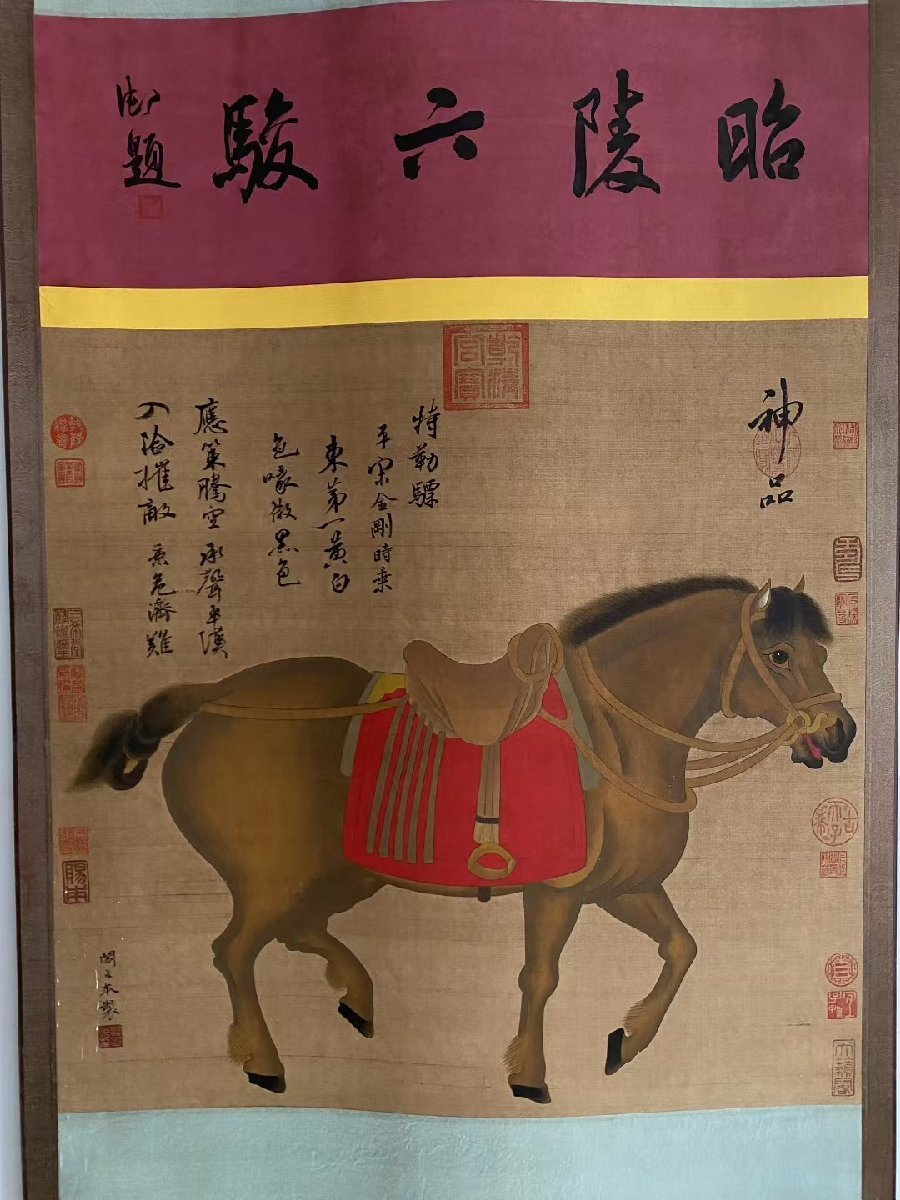 昭陵六駿
御題
神品
乾清宮寶
特勒驃
平宋金剛時乘
東第一黃白
色喙微黑色
應策騰空 承聲半漢
入險摧敵 乘危濟難
古希天子
閻立本製